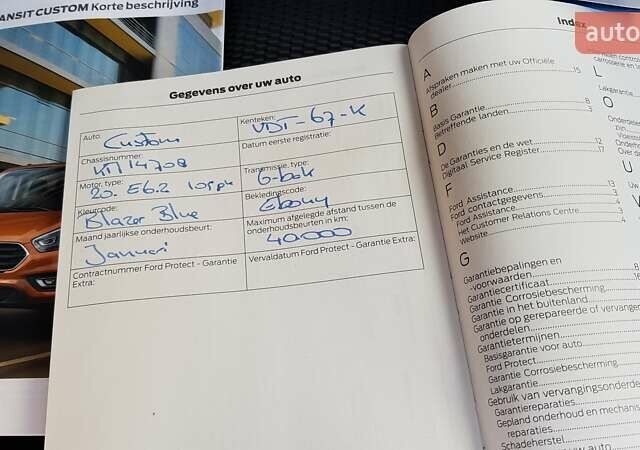 TRANSIT CUSTOM Korte beschrijving
Gegevens over uw auto
Auto:
Custom
Kenteken:
VDT-67-K
Chassisnummer:
KM14708
Datum eerste registratie:
Motor, type:
20. E6.2 105pk
Transmissie, type:
6-bak
Kleurcode:
Blazer Blue
Bekledingscode:
Ebony
Maand jaarlijkse onderhoudsbeurt:
Januari
Maximum afgelegde afstand tussen de
onderhoudsbeurten in km:
40.000
Contractnummer Ford Protect - Garantie
Extra:
Vervaldatum Ford Protect - Garantie Extra:
Index
auto
A
Afspraken maken met uw Officiële
dealer 15
B
Basis Garantie 8
Betreffende landen 3
D
De Garanties en de wet 12
Digitaal Service Register 17
F
Ford Assistance 13
Ford contactgegevens 4
Ford Assistance 4
Het Customer Relations Centre 3
Website 4
G
Garantiebepalingen en
-voorwaarden 8
Garantiecertificaat 16
Garantie Corrosiebescherming
Garantie in het buitenland
Garantie op gerepareerde of vervangen
onderdelen
Garantietermijnen
Basisgarantie voor auto
Ford Protect
Garantie Corrosiebescherming
Lakgarantie
Gebruik van vervangingsonderde
Garantiereparaties
Gepland onderhoud en mechanis
reparaties
Schadeherstel
uw auto
L
Lakgarantie
O
Onderdelen